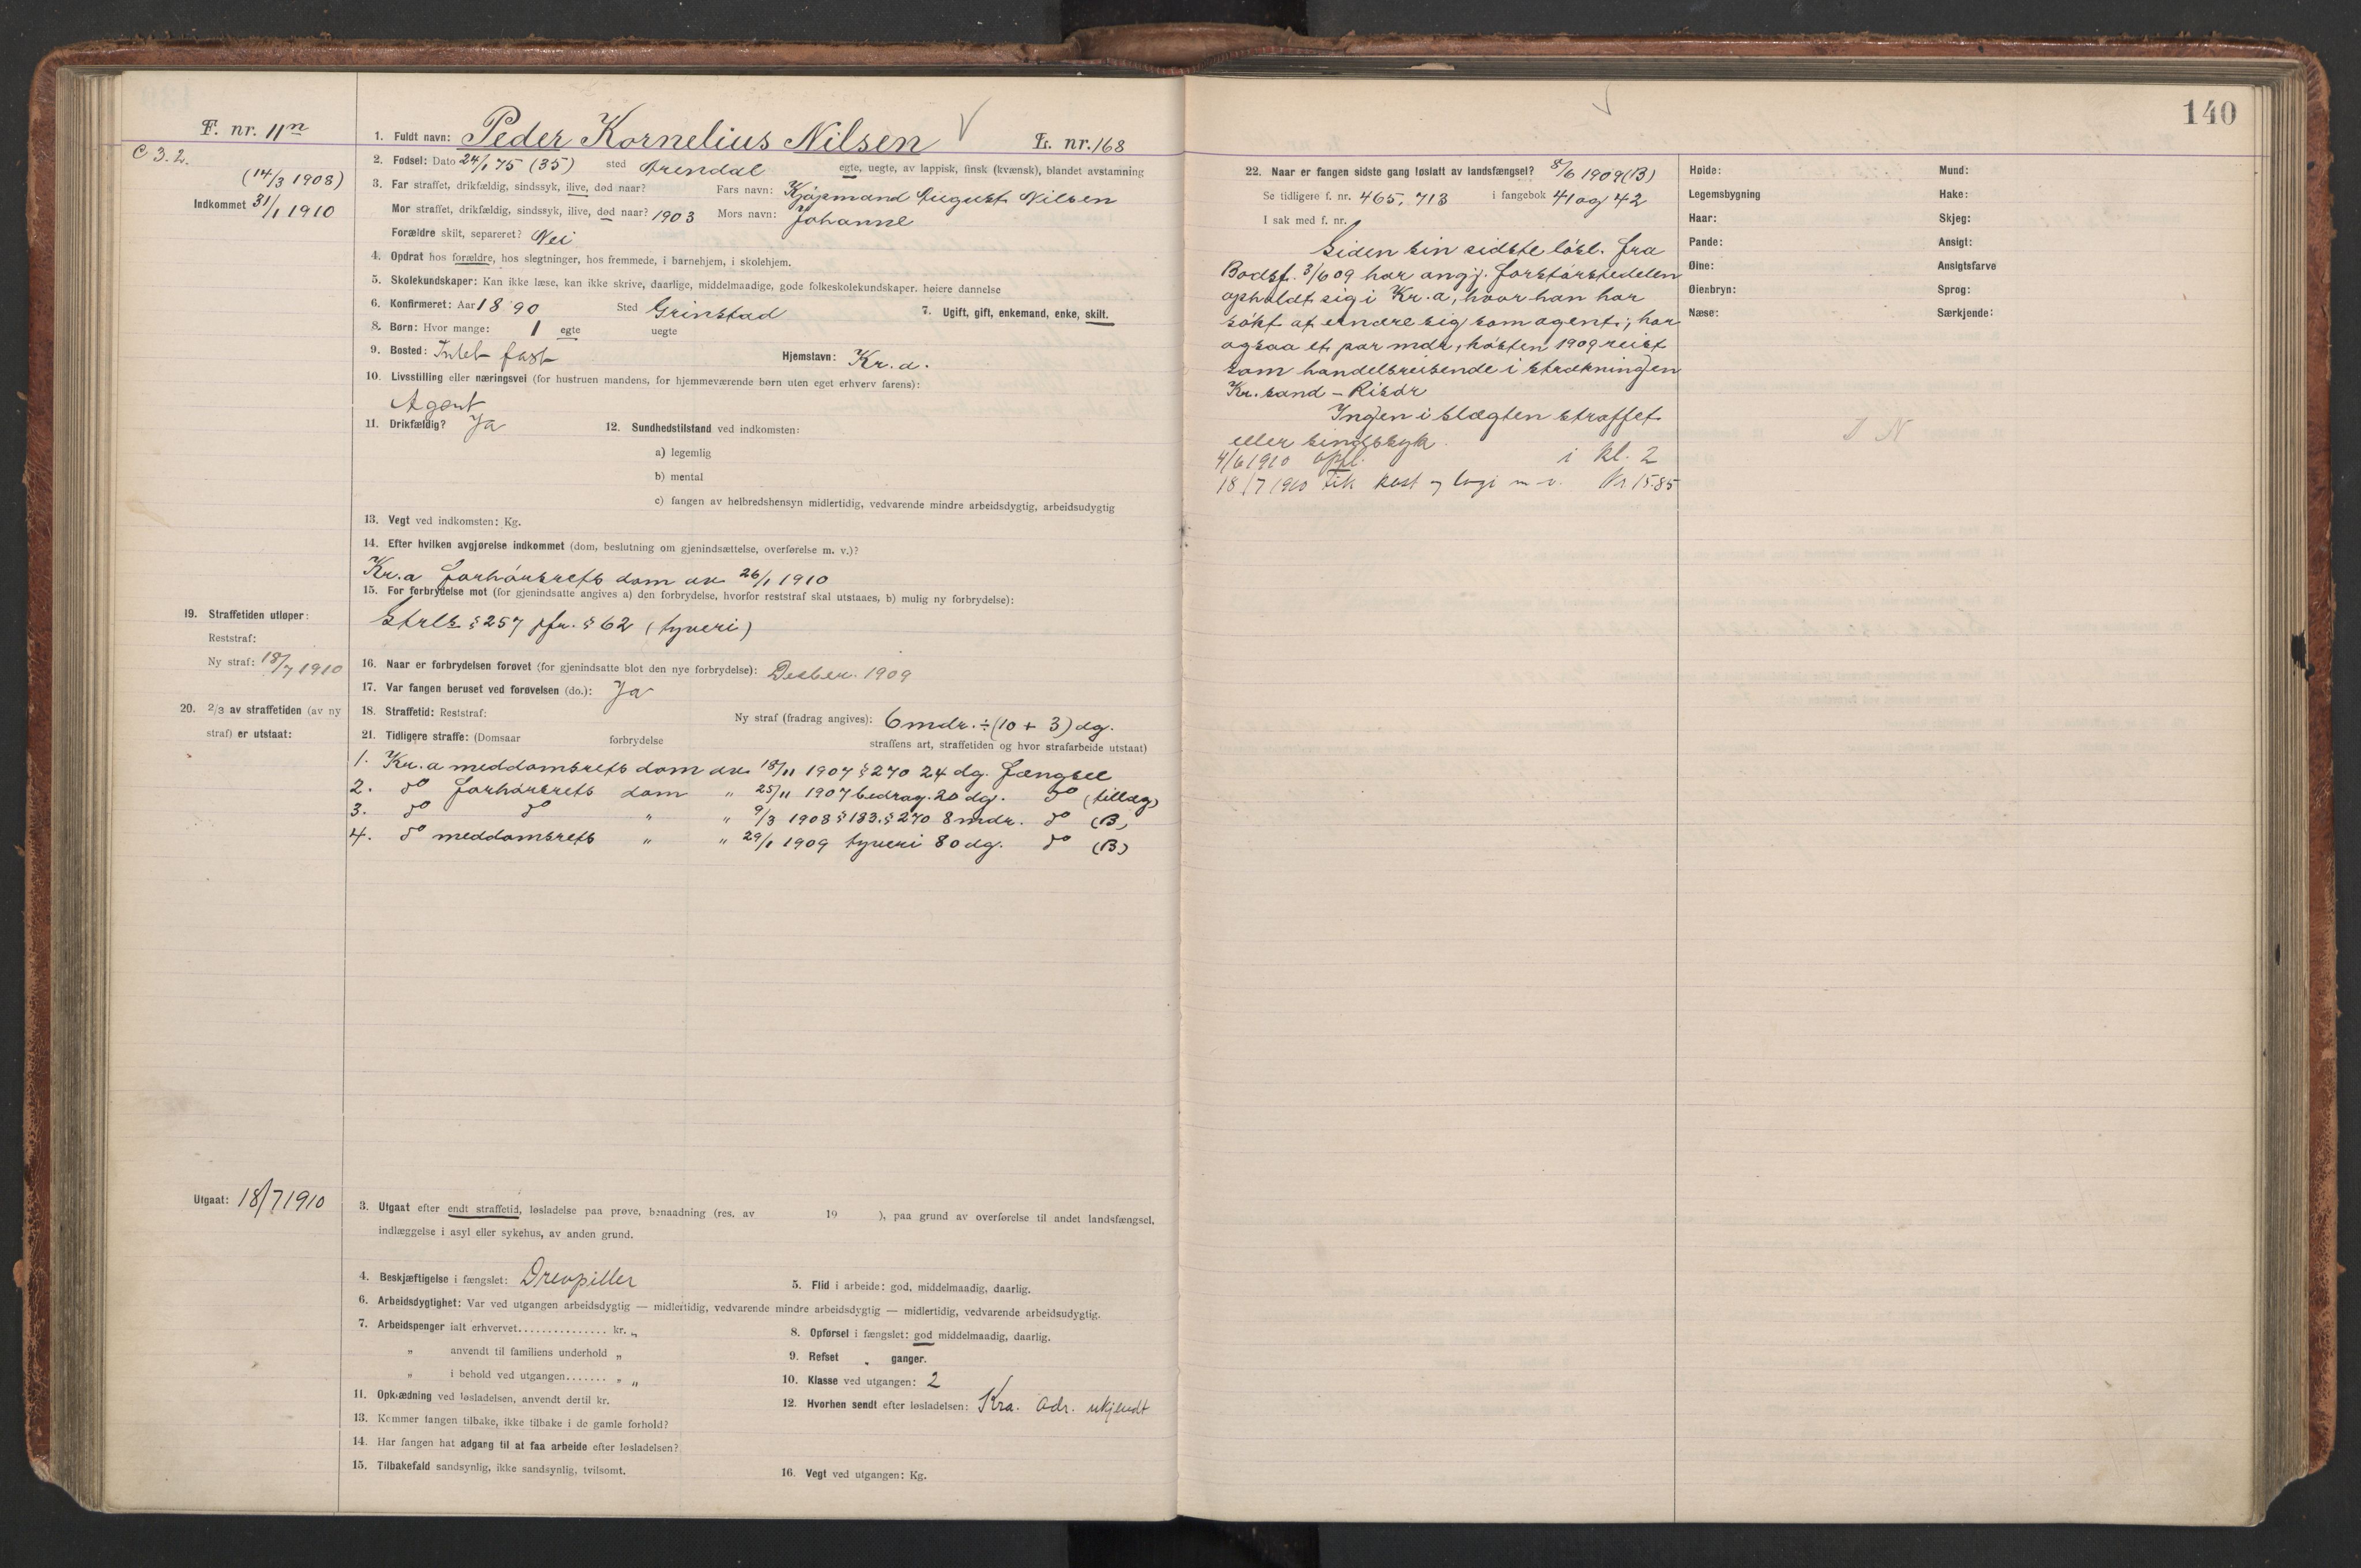 F. nr. 11n
C 3. 2.
(14/3 1908)
Indkommet 31/1 1910
1. Fuldt navn: Peder Kornelius Nilsen L. nr. 168
2. Fødsel: Dato 24/1 75 (35) sted Arendal egte, uegte, av lappisk, finsk (kvænsk), blandet avstamning
3. Far straffet, drikfældig, sindssyk, ilive, død naar? Fars navn: Kjøpmand August Nilsen
Mor straffet, drikfældig, sindssyk, ilive, død naar? 1903 Mors navn: Johanne
Forældre skilt, separeret? Nei
4. Opdrat hos forældre, hos slegtninger, hos fremmede, i barnehjem, i skolehjem.
5. Skolekundskaper: Kan ikke læse, kan ikke skrive, daarlige, middelmaadige, gode folkeskolekundskaper. høiere dannelse
6. Konfirmeret: Aar 1890 Sted Grinstad 7. Ugift, gift, enkemand, enke, skilt.
8. Børn: Hvor mange: 1 egte uegte
9. Bosted: Intet fast Hjemstavn: Kr.a.
10. Livsstilling eller næringsvei (for hustruen mandens, for hjemmeværende børn uten eget erhverv farens):
Agent
11. Drikfældig? Ja 12. Sundhedstilstand ved indkomsten:
a) legemlig
b) mental
c) fangen av helbredshensyn midlertidig, vedvarende mindre arbeidsdygtig, arbeidsudygtig
13. Vegt ved indkomsten: Kg.
14. Efter hvilken avgjørelse indkommet (dom, beslutning om gjenindsættelse, overførelse m. v.)?
Kr.a forhørsrets dom av 26/1 1910
15. For forbrydelse mot (for gjenindsatte angives a) den forbrydelse, hvorfor reststraf skal utstaaes, b) mulig ny forbrydelse):
Strls § 257 jfr. § 62 (tyveri)
19. Straffetiden utløper:
Reststraf:
Ny straf: 18/7 1910
16. Naar er forbrydelsen forøvet (for gjenindsatte blot den nye forbrydelse): Desber. 1909
17. Var fangen beruset ved forøvelsen (do.): Ja
20. 2/3 av straffetiden (av ny straf) er utstaat:
18. Straffetid: Reststraf: Ny straf (fradrag angives): 6 mdr. ÷ (10 + 3) dg.
21. Tidligere straffe: (Domsaar forbrydelse straffens art, straffetiden og hvor strafarbeide utstaat)
1. Kr.a meddomsrets dom av 18/11 1907 § 270 24 dg. fængsel
2. do forhørsrets dom " 25/11 1907 bedrag. 20 dg. do (tillæg)
3. do do " " 9/3 1908 § 183. § 270 8 mdr. do (B)
4. do meddomsrets " " 29/1 1909 tyveri 80 dg. do (B)
Utgaat: 18/7 1910
3. Utgaat efter endt straffetid, løsladelse paa prøve, benaadning (res. av 19 ), paa grund av overførelse til andet landsfængsel,
indlæggelse i asyl eller sykehus, av anden grund.
4. Beskjæftigelse i fængslet: Drevpiller 5. Flid i arbeide: god, middelmaadig, daarlig.
6. Arbeidsdygtighet: Var ved utgangen arbeidsdygtig — midlertidig, vedvarende mindre arbeidsdygtig — midlertidig, vedvarende arbeidsudygtig.
7. Arbeidspenger ialt erhvervet............... kr. " 8. Opførsel i fængslet: god middelmaadig, daarlig.
" anvendt til familiens underhold " 9. Refset " ganger.
" i behold ved utgangen....... " " 10. Klasse ved utgangen: 2
11. Opklædning ved løsladelsen, anvendt dertil kr. 12. Hvorhen sendt efter løsladelsen: Kra. Adr. ukjendt
13. Kommer fangen tilbake, ikke tilbake i de gamle forhold?
14. Har fangen hat adgang til at faa arbeide efter løsladelsen?
15. Tilbakefald sandsynlig, ikke sandsynlig, tvilsomt. 16. Vegt ved utgangen: Kg.
140
22. Naar er fangen sidste gang løslatt av landsfængsel? 8/6 1909 (B)
Se tidligere f. nr. 465, 713 i fangebok 41 og 42
I sak med f. nr.
Siden sin sidste løsl. fra
Bodsf. 3/6 09 har angj. forstørstedelen
opholdt sig i Kr.a, hvor han har
søkt at ernære sig som agent; har
ogsaa et par mdr, høsten 1909 reist
som handelsreisende i strækningen
Kr.sand - Risør
Ingen i slægten straffet
eller sindssyk.
4/6 1910 opfl. i kl. 2
18/7 1910 Fik kost og logi m v. Kr 15.85
Høide: Mund:
Legemsbygning Hake:
Haar: Skjeg:
Pande: Ansigt:
Øine: Ansigtsfarve
Øienbryn: Sprog:
Næse: Særkjende: